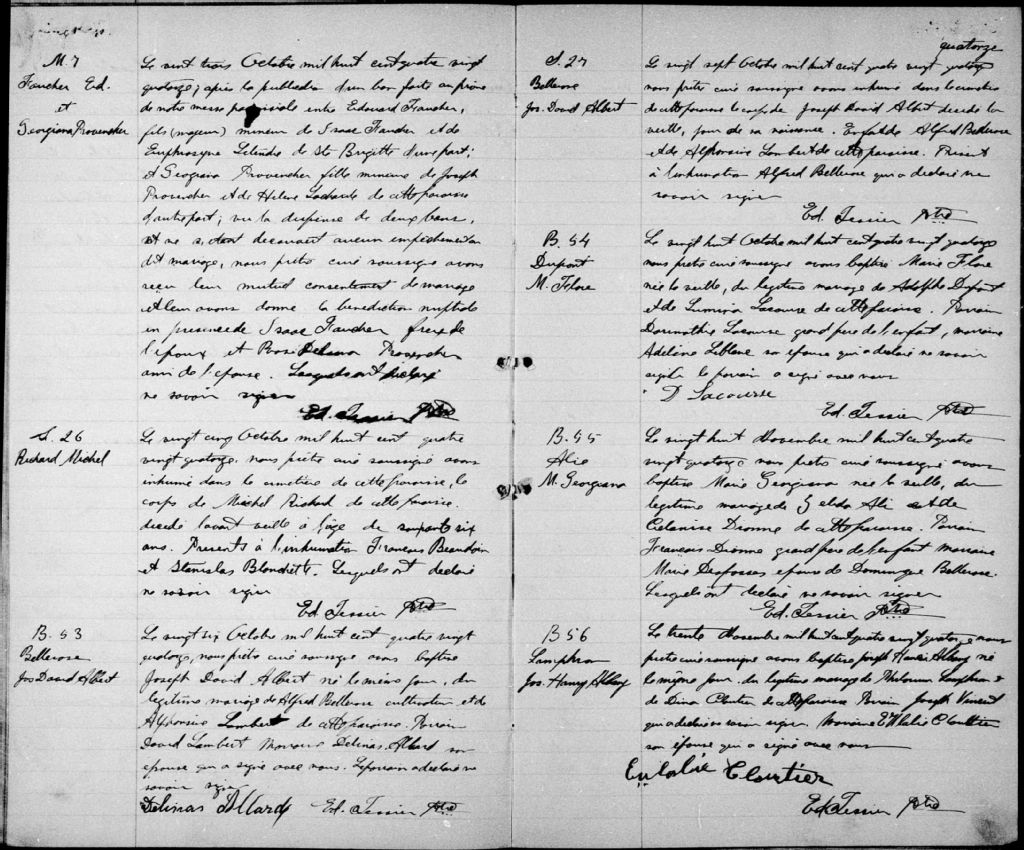 M. 7
Faucher Ed.
et
Georgiana Provencher
Le vingt trois Octobre mil huit cent quatre vingt
quatorze, après la publication d'un ban faite au prône
de notre messe paroissiale entre Edouard Faucher,
fils (majeur) mineur de Isaac Faucher et de
Euphrosyne Letendre de Ste Brigitte d'une part;
et Georgiana Provencher fille mineure de Joseph
Provencher et de Helene de cette paroisse
d'autre part; vu la dispense de deux bans,
et ne s'étant decouvert aucun empêchement au
dit mariage, nous prêtre curé soussigné avons
reçu leur mutuel consentement de mariage
et leur avons donné la benediction nuptiale
en presence de Isaac Faucher frere de
l'époux et Rosi Delima Provencher
ami de l'epouse. Lesquels ont declaré
ne savoir signer
Ed. Tessier Ptre
S. 26
Richard Michel
Le vingt cinq Octobre mil huit cent quatre
vingt quatorze nous prêtre curé soussigné avons
inhumé dans le cimetière de cette paroisse, le
corps de Michel Richard de cette paroisse
decedé l'avant veille à l'âge de soixante six
ans. Presents à l'inhumation François Beaudoin
et Stanislas Blondette. Lesquels ont declaré
ne savoir signer
Ed. Tessier Ptre
B. 53
Bellerose
Jos David Albert
Le vingt six Octobre mil huit cent quatre vingt
quatorze, nous prêtre curé soussigné avons baptisé
Joseph David Albert né le même jour, du
legitime mariage de Alfred Bellerose cultivateur et de
Alphonsine Lambert de cette paroisse. Parrain
David Lambert Marraine Delinas Allard son
epouse qui a signé avec nous. Le parrain a declaré ne
savoir signer
Delinas Allard Ed. Tessier Ptre
quatorze
S. 27
Bellerose
Jos. David Albert
Le vingt sept Octobre mil huit cent quatre vingt quatorze
nous prêtre curé soussigné avons inhumé dans le cimetière
de cette paroisse le corps de Joseph David Albert decedé la
veille, jour de sa naissance. Enfant de Alfred Bellerose
et de Alphonsine Lambert de cette paroisse. Present
à l'inhumation Alfred Bellerose qui a declaré ne
savoir signer
Ed. Tessier Ptre
B. 54
Dupont
M. Flore
Le vingt huit Octobre mil huit cent quatre vingt quatorze
nous prêtre curé soussigné avons baptisé Marie Flore
née la veille, du legitime mariage de Adolphe Dupont
et de Lumina Lacourse de cette paroisse. Parrain
Lacourse grand pere de l'enfant, marraine
Adeline Leblanc son epouse qui a declaré ne savoir
signer le parrain a signé avec nous
D Lacourse
Ed. Tessier Ptre
B. 55
Alie
M. Georgiana
Le vingt huit Novembre mil huit cent quatre
vingt quatorze nous prêtre curé soussigné avons
baptisé Marie Georgiana née la veille, du
legitime mariage de Zelda Ali et de
Celanise Dionne de cette paroisse. Parrain
François Dionne grand pere de l'enfant marraine
Marie Desfosses epouse de Domingue Bellerose.
Lesquels ont declaré ne savoir signer
Ed. Tessier Ptre
B 56
Lamphron
Jos. Harry Albany
Le trente Novembre mil huit cent quatre vingt quatorze nous
prêtre curé soussigné avons baptisé Joseph Harris Albany né
le même jour du legitime mariage de Philorum Lamphron &
de Dina Cloutier de cette paroisse Parrain Joseph Vincent
qui a declaré ne savoir signer Marraine E'Hlalie Cloutier
son épouse qui a signé avec nous
Eulalie Cloutier
Ed Tessier Ptre